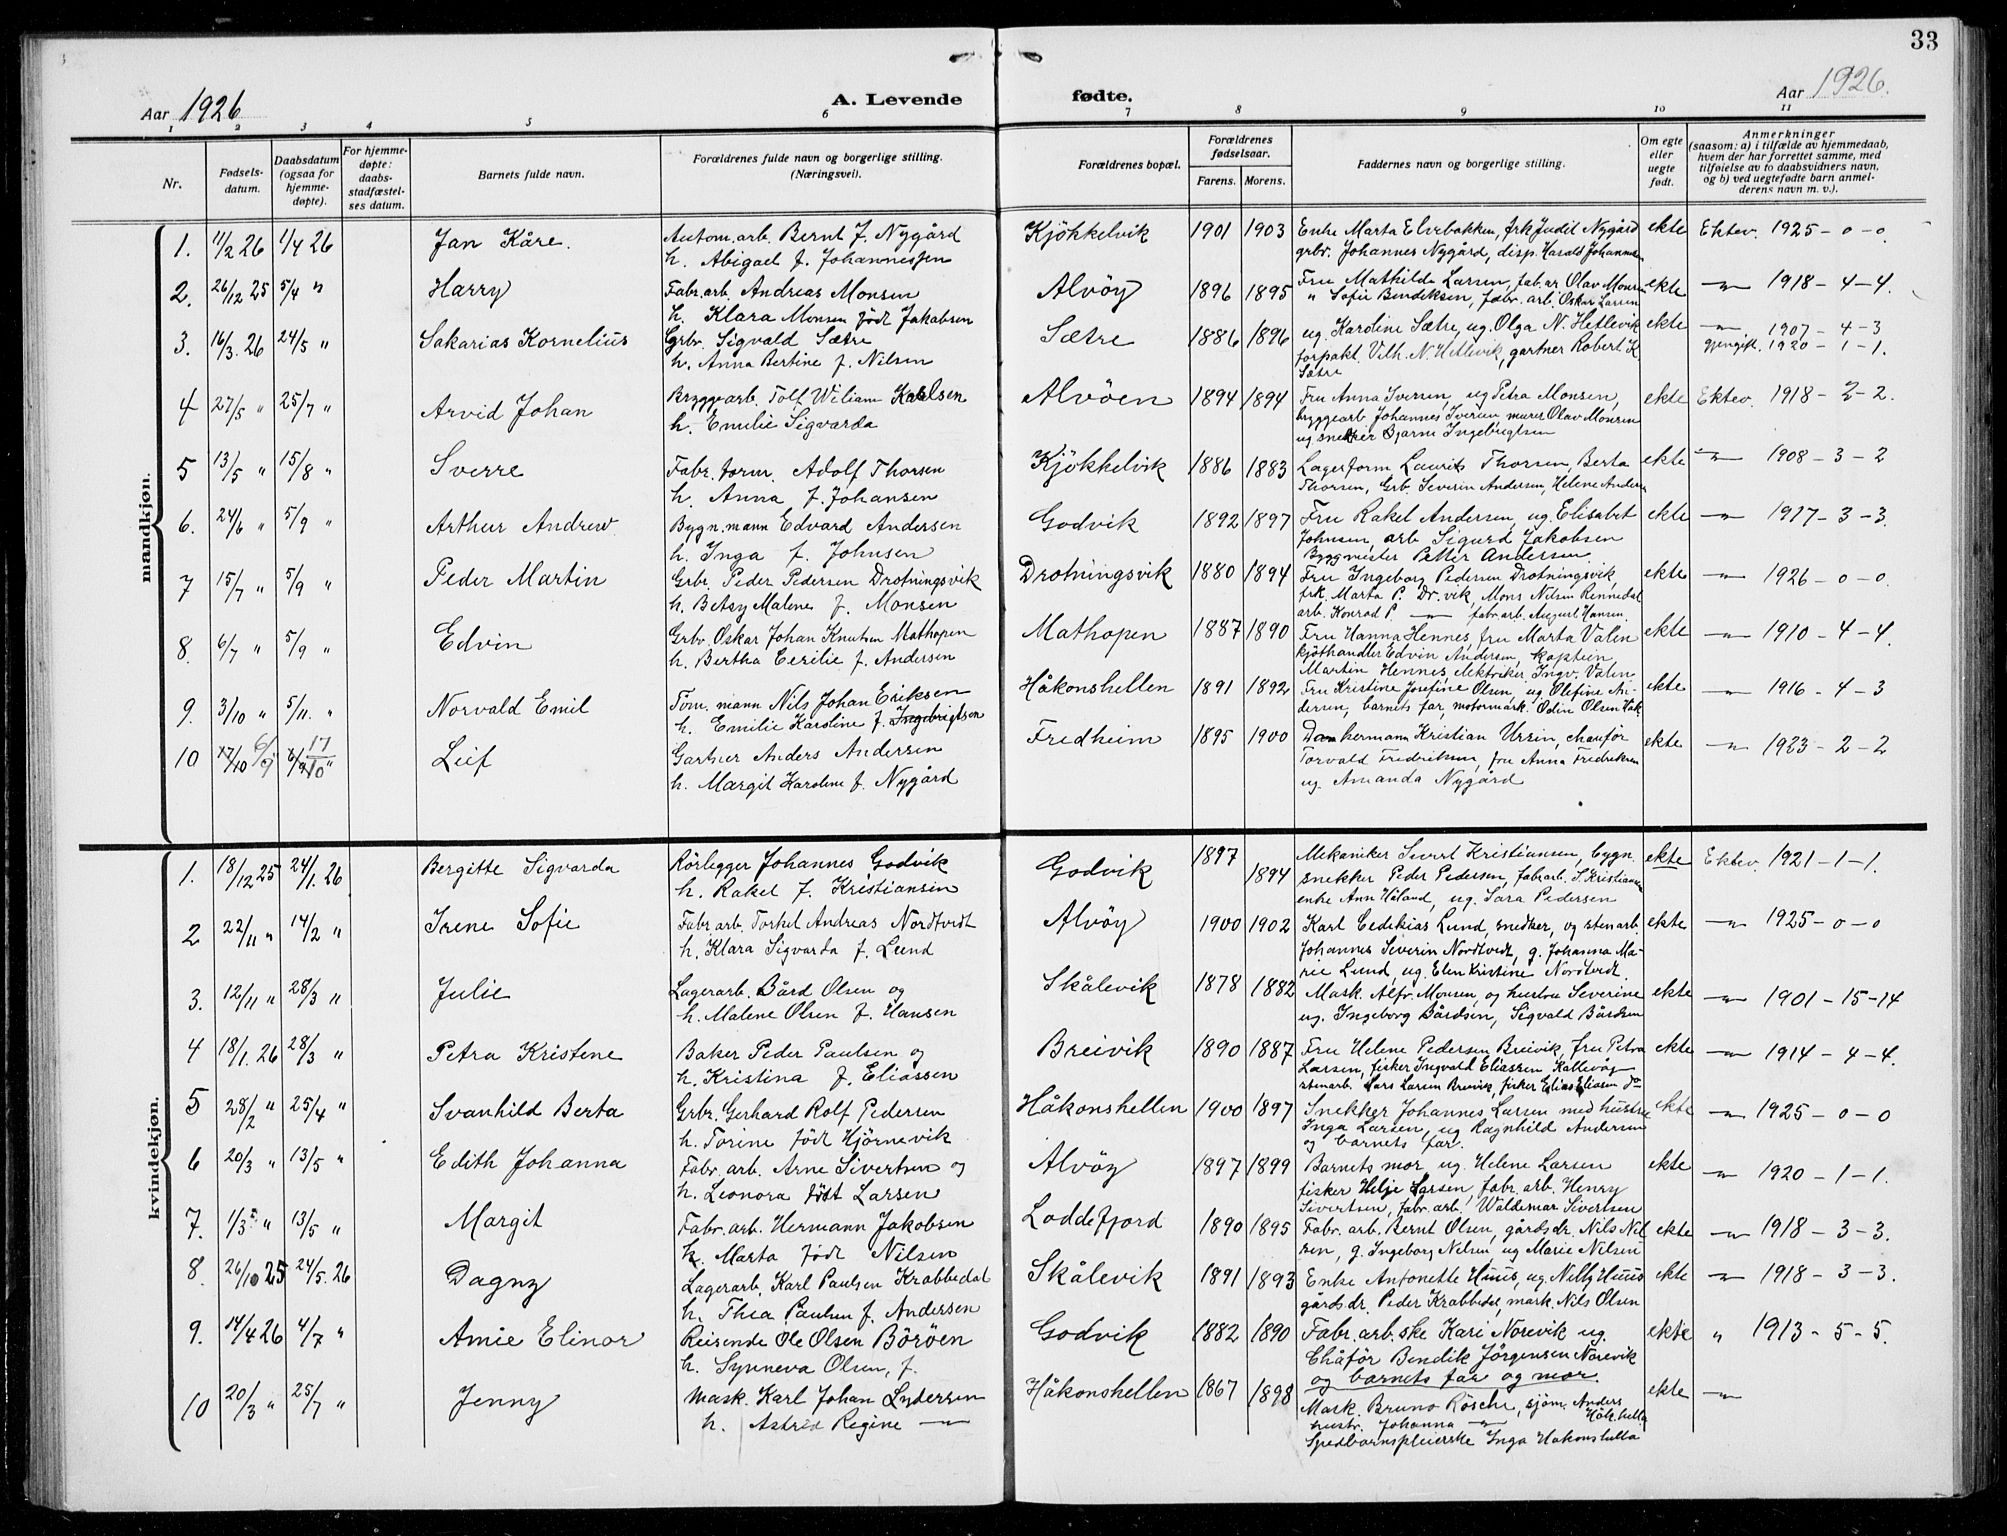 33
Aar 1926
A. Levende fødte.
Aar 1926.
1 2 3 4 5 6 7 8 9 10 11
Nr.
Fødsels-
datum.
Daabsdatum
(ogsaa for
hjemme-
døpte).
For hjemme-
døpte:
daabs-
stadfæstel-
ses datum.
Barnets fulde navn.
Forældrenes fulde navn og borgerlige stilling.
(Næringsvei).
Forældrenes bopæl.
Forældrenes
fødselsaar.
Farens. Morens.
Faddernes navn og borgerlige stilling.
Om egte
eller
uegte
født.
Anmerkninger
(saasom: a) i tilfælde av hjemmedaab,
hvem der har forrettet samme, med
tilføielse av to daabsvidners navn,
og b) ved uegtefødte barn anmel-
derens navn m. v.).
mandkjøn.
1. 11/2 26 1/4 26 Jan Kåre. Autom. arb. Bernt J. Nygård Kjökkelvik 1901 1903 Enke Marta Elvebakken, frk Judit Nygård ekte Ektev. 1925 - 0 - 0.
h. Abigael f. Johannessen grbr. Johannes Nygård, disp. Harald Johannesen
2. 26/12 25 5/4 " Harry Fabr. arb. Andreas Monsen Alvöy 1896 1895 Fru Mathilde Larsen, fab. ar Olav Monsen ekte -"- 1918 - 4 - 4.
h. Klara Monsen født Jakobsen " Sofie Bendiksen, fabr. arb. Oskar Larsen
3. 16/3. 26 24/5 " Sakarias Kornelius Grbr. Sigvald Sætre Sætre 1886 1896 ug. Karoline Sætre, ug. Olga N. Hetlevik ekte -"- 1907 - 4 - 3
h. Anna Bertine f. Nilsen forpakt. Vilh. N. Hetlevik, gartner Robert K gjengift. 1920 - 1 - 1.
Sætre
4 27/5 " 25/7 " Arvid Johan Bryggearb. Tolf Wiliam Karlsen Alvöen 1894 1894 Fru Anna Iversen, ug Petra Monsen, ekte Ektev. 1918 - 2 - 2.
h. Emilie Sigvarda bryggearb. Johannes Iversen murer Olav Monsen
ug. snekker Bjarne Ingebrigtsen
5 13/5 " 15/8 " Sverre Fabr. form. Adolf Thorsen Kjökkelvik 1886 1883 Lagerform Laurits Thorsen, Berta ekte -"- 1908 - 3 - 2
h. Anna f. Johansen Thorsen, Grb. Severin Andersen, Helene Andersn
6. 24/6 " 5/9 " Arthur Andrew. Bygn. mann Edvard Andersen Godvik 1892 1897 Fru Rakel Andersen, ug. Elisabet ekte -"- 1917 - 3 - 3.
h. Inga f. Johnsen Johnsen, arb Sigurd Jakobsen
Byggmester Petter Andersen
7 15/7 " 5/9 " Peder Martin Grbr Peder Pedersen Drotningsvik Drotningsvik 1880 1894 Fru Ingeborg Pedersen Drotningsvik, ekte -"- 1926 - 0 - 0.
h. Betsy Malene f. Monsen frk. Marta P. Dr. vik, Mons Nilsen Rennedal
arb. Konrad P. -"- fabr. arb. August Hansen.
8. 6/7 " 5/9 " Edvin Grbr. Oskar Johan Knutsen Mathopen Mathopen 1887 1890 Fru Hanna Hennes, fru Marta Valen ekte -"- 1910 - 4 - 4.
h. Bertha Cecilie f. Andersen kjøthandler Edvin Andersen, kaptein
Martin Hennes, elektriker Ingv. Valen
9. 3/10 " 5/11. " Norvald Emil Töm. mann Nils Johan Eriksen Håkonshellen 1891 1892 Fru Kristine Josefine Olsen, ug Olefine An- ekte -"- 1916 - 4 - 3
h. Emilie Karoline f. Ingebrigtsen dersen, barnets far, motormask. Odin Olsen Håk.
10 17/10 6/9 17/10 " Leif Gartner Anders Andersen Fredheim 1895 1900 Damhermann Kristian Ursin, chauför ekte -"- 1923 - 2 - 2
h. Margit Karoline f. Nygård Torvald Fredriksen, fru Anna Fredriksen
ug. Amanda Nygård
kvindekjøn.
1. 18/12 25 24/1. 26 Bergitte Sigvarda Rörlegger Johannes Godvik Godvik 1897 1894 Mekaniker Sivert Kristiansen, bygn. ekte Ektev. 1921 - 1 - 1.
h. Rakel f. Kristiansen snekker Peder Pedersen, fabr. arb. S. Kristiansen
enke Ann Håland, ug. Sara Pedersen
2 22/11 " 14/2 " Irene Sofie Fabr. arb. Torkel Andreas Nordtvedt Alvöy 1900 1902 Karl Cedekias Lund, snedker, og stenarb. ekte -"- 1925 - 0 - 0
h. Klara Sigvarda f. Lund Johannes Severin Nordtvedt, g. Johanna Ma-
rie Lund, ug. Elen Kristine Nordtvedt.
3. 12/11 " 28/3 " Julie Lagerarb. Bård Olsen og Skålevik 1878 1882 Mask. Alfr. Monsen, og hustru Severine ekte -"- 1901 - 15 - 14
h. Malene Olsen f. Hansen ug. Ingeborg Bårdsen, Sigvald Bårdsen
4 18/1. 26 28/3 " Petra Kristene Baker Peder Paulsen og Breivik 1890 1887 Fru Helene Pedersen Breivik, fru Petra ekte -"- 1914 - 4 - 4.
h. Kristina f. Eliassen Larsen, fisker Ingvald Eliassen Kallevåg
stenarb. Lars Larsen Breivik, fisker Elias Eliasen do
5 28/2 " 25/4 " Svanhild Berta Grbr. Gerhard Rolf Pedersen Håkonshellen 1900 1897 Snekker Johannes Larsen med hustru ekte -"- 1925 - 0 - 0
h. Torine født Hjörnevik Inga Larsen, ug Ragnhild Andersen
og barnets far.
6 20/3 " 13/5 " Edith Johanna Fabr. arb. Arne Sivertsen og Alvöy 1897 1899 Barnets mor, ug. Helene Larsen ekte -"- 1920 - 1 - 1.
h. Leonora født Larsen fisker Helje Larsen, fabr. arb. Henry
Sivertsen, fabr. arb. Waldemar Sivertsen
7. 1/3 " 13/5 " Margit Fabr. arb. Hermann Jakobsen Loddefjord 1890 1895 Fabr. arb. Bernt Olsen, gårdsdr. Nils Nil ekte -"- 1918 - 3 - 3.
h. Marta født Nilsen sen, g. Ingeborg Nilsen ug Marie Nilsen
8. 26/10 25 24/5. 26 Dagny Lagerarb. Karl Paulsen Krabbedal Skålevik 1891 1893 Enke Antonette Huus, ug. Nelly Huus ekte -"- 1918 - 3 - 3.
h. Thea Paulsen f. Andersen gårdsdr. Peder Krabbedal, mask. Nils Olsen
9. 14/4 26 4/7 " Amie Elinor Reisende Ole Olsen Böröen Godvik 1882 1890 Fabr. arb. ske Kari Norevik ug. ekte " 1913 - 5 - 5.
h. Synneva Olsen, f. Chåför Bendik Jörgensen Norevik
og barnets far og mor.
10 20/3 " 25/7 " Jenny Mask. Karl Johan Lydersen Håkonshellen 1867 1898 Mask. Bruno Rösche, sjöm. Anders ekte -"-
h. Astrid Regine -"- hustr. Johanna -"- Håk.hella
Spedbarnspleierske Inga Håkonshella